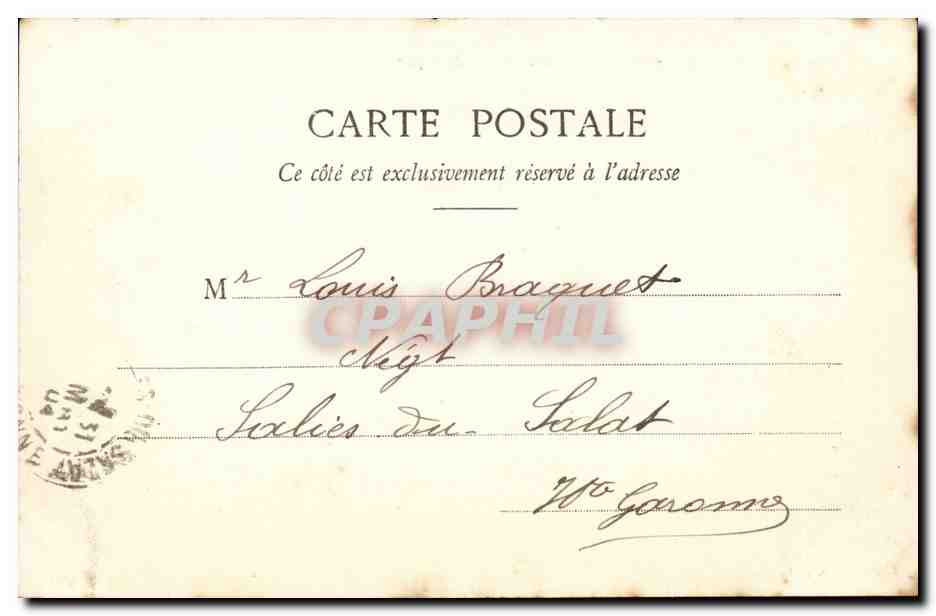 CARTE POSTALE
Ce côté est exclusivement réservé à l'adresse
Mr Louis Braquet
CPAPHIL
Négt
Salies du Salat
Hte Garonne